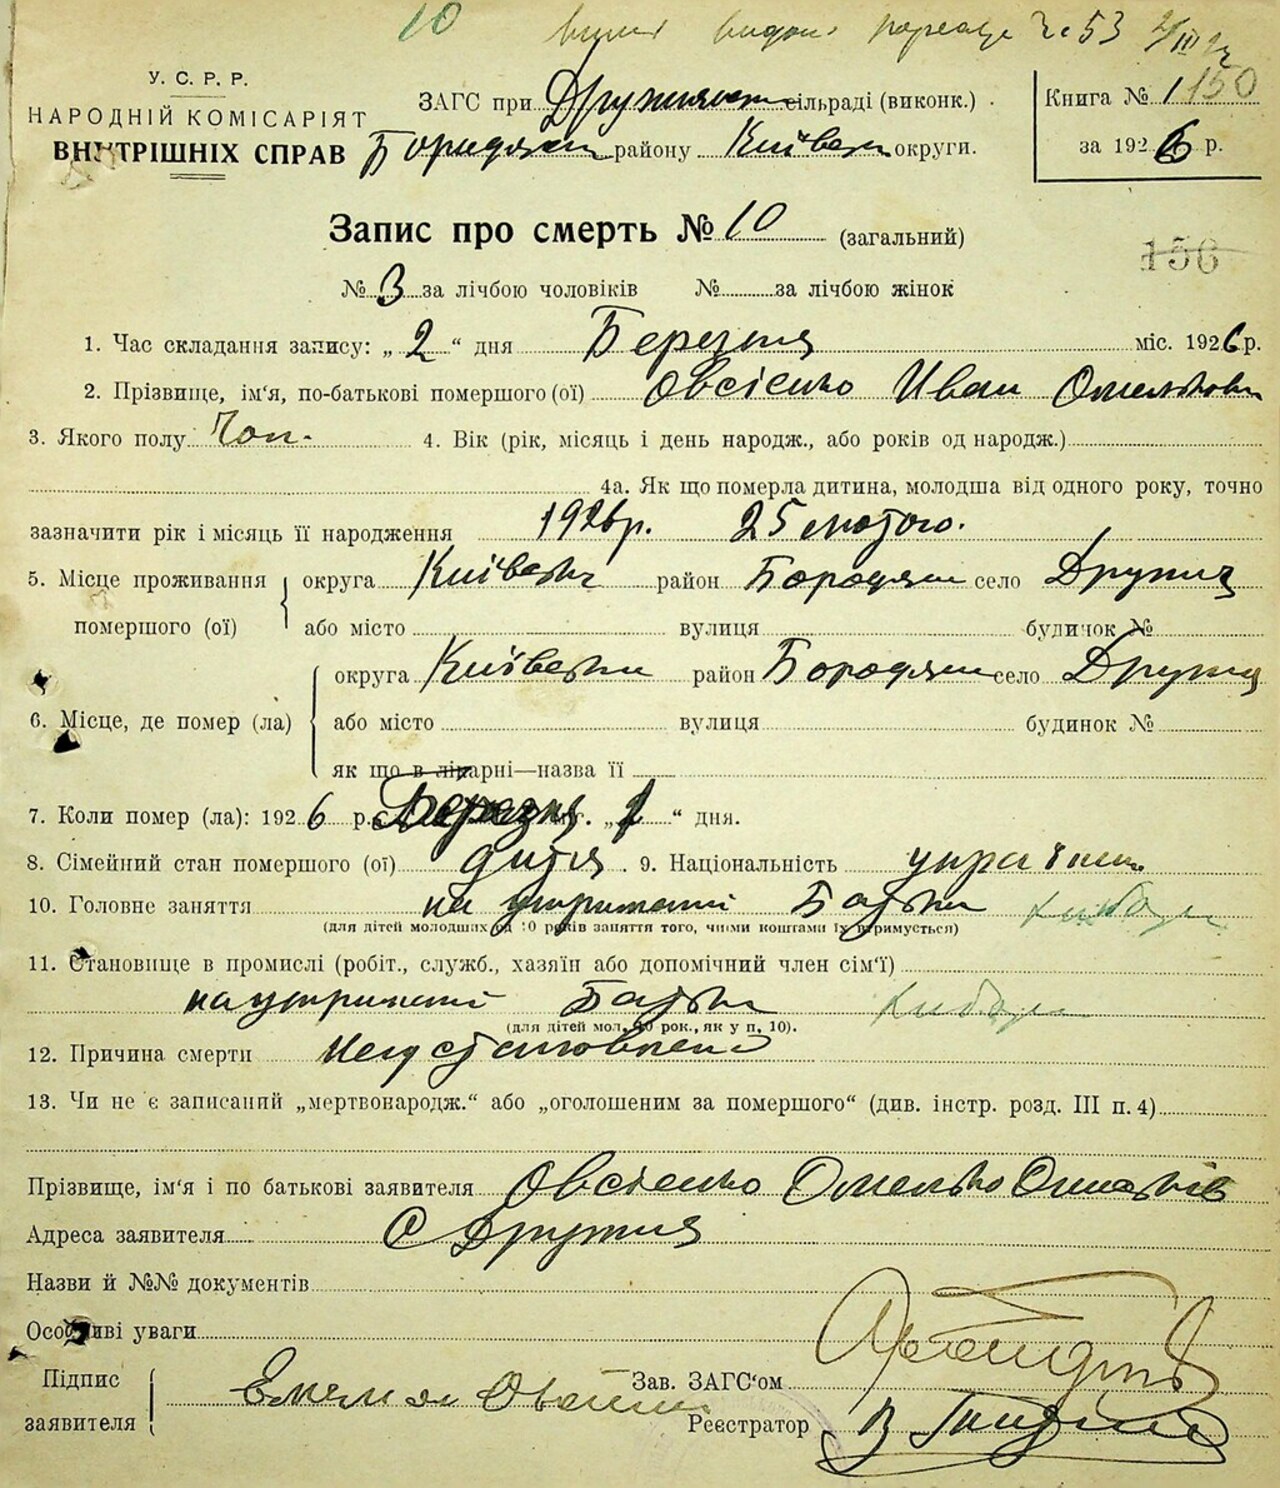 10
У. С. Р. Р.
НАРОДНІЙ КОМІСАРІЯТ
ВНУТРІШНІХ СПРАВ
ЗАГС при сільраді (виконк.)
району округи.
Книга № 1 150
за 1926 р.
Запис про смерть № 10 (загальний)
156
№ 3 за лічбою чоловіків № за лічбою жінок
1. Час складання запису: „ 2 “ дня Березня міс. 1926 р.
2. Прізвище, ім‘я, по-батькові помершого (ої) Овсієнко Иван
3. Якого полу Чол. 4. Вік (рік, місяць і день народж., або років од народж.)
4а. Як що померла дитина, молодша від одного року, точно
зазначити рік і місяць її народження 1926 р. 25 лютого.
5. Місце проживання округа район село
помершого (ої) або місто вулиця будинок №
6. Місце, де помер (ла) округа район село
або місто вулиця будинок №
як що в лікарні—назва її
7. Коли помер (ла): 1926 р. Березня „ “ дня.
8. Сімейний стан помершого (ої) дитя . 9. Національність
10. Головне заняття на утриманні Батьки
(для дітей молодших од 10 років заняття того, чиїми коштами їх втримується)
11. Становище в промислі (робіт., служб., хазяїн або допомічний член сім‘ї)
на утриманні Батьки
(для дітей мол. 10 рок., як у п. 10).
12. Причина смерти
13. Чи не є записаний „мертвонародж.“ або „оголошеним за помершого“ (див. інстр. розд. III п. 4)
Прізвище, ім‘я і по батькові заявителя Овсієнко Омелько
Адреса заявителя С Дружня
Назви й №№ документів
Особливі уваги
Підпис
заявителя
Зав. ЗАГС‘ом
Реєстратор